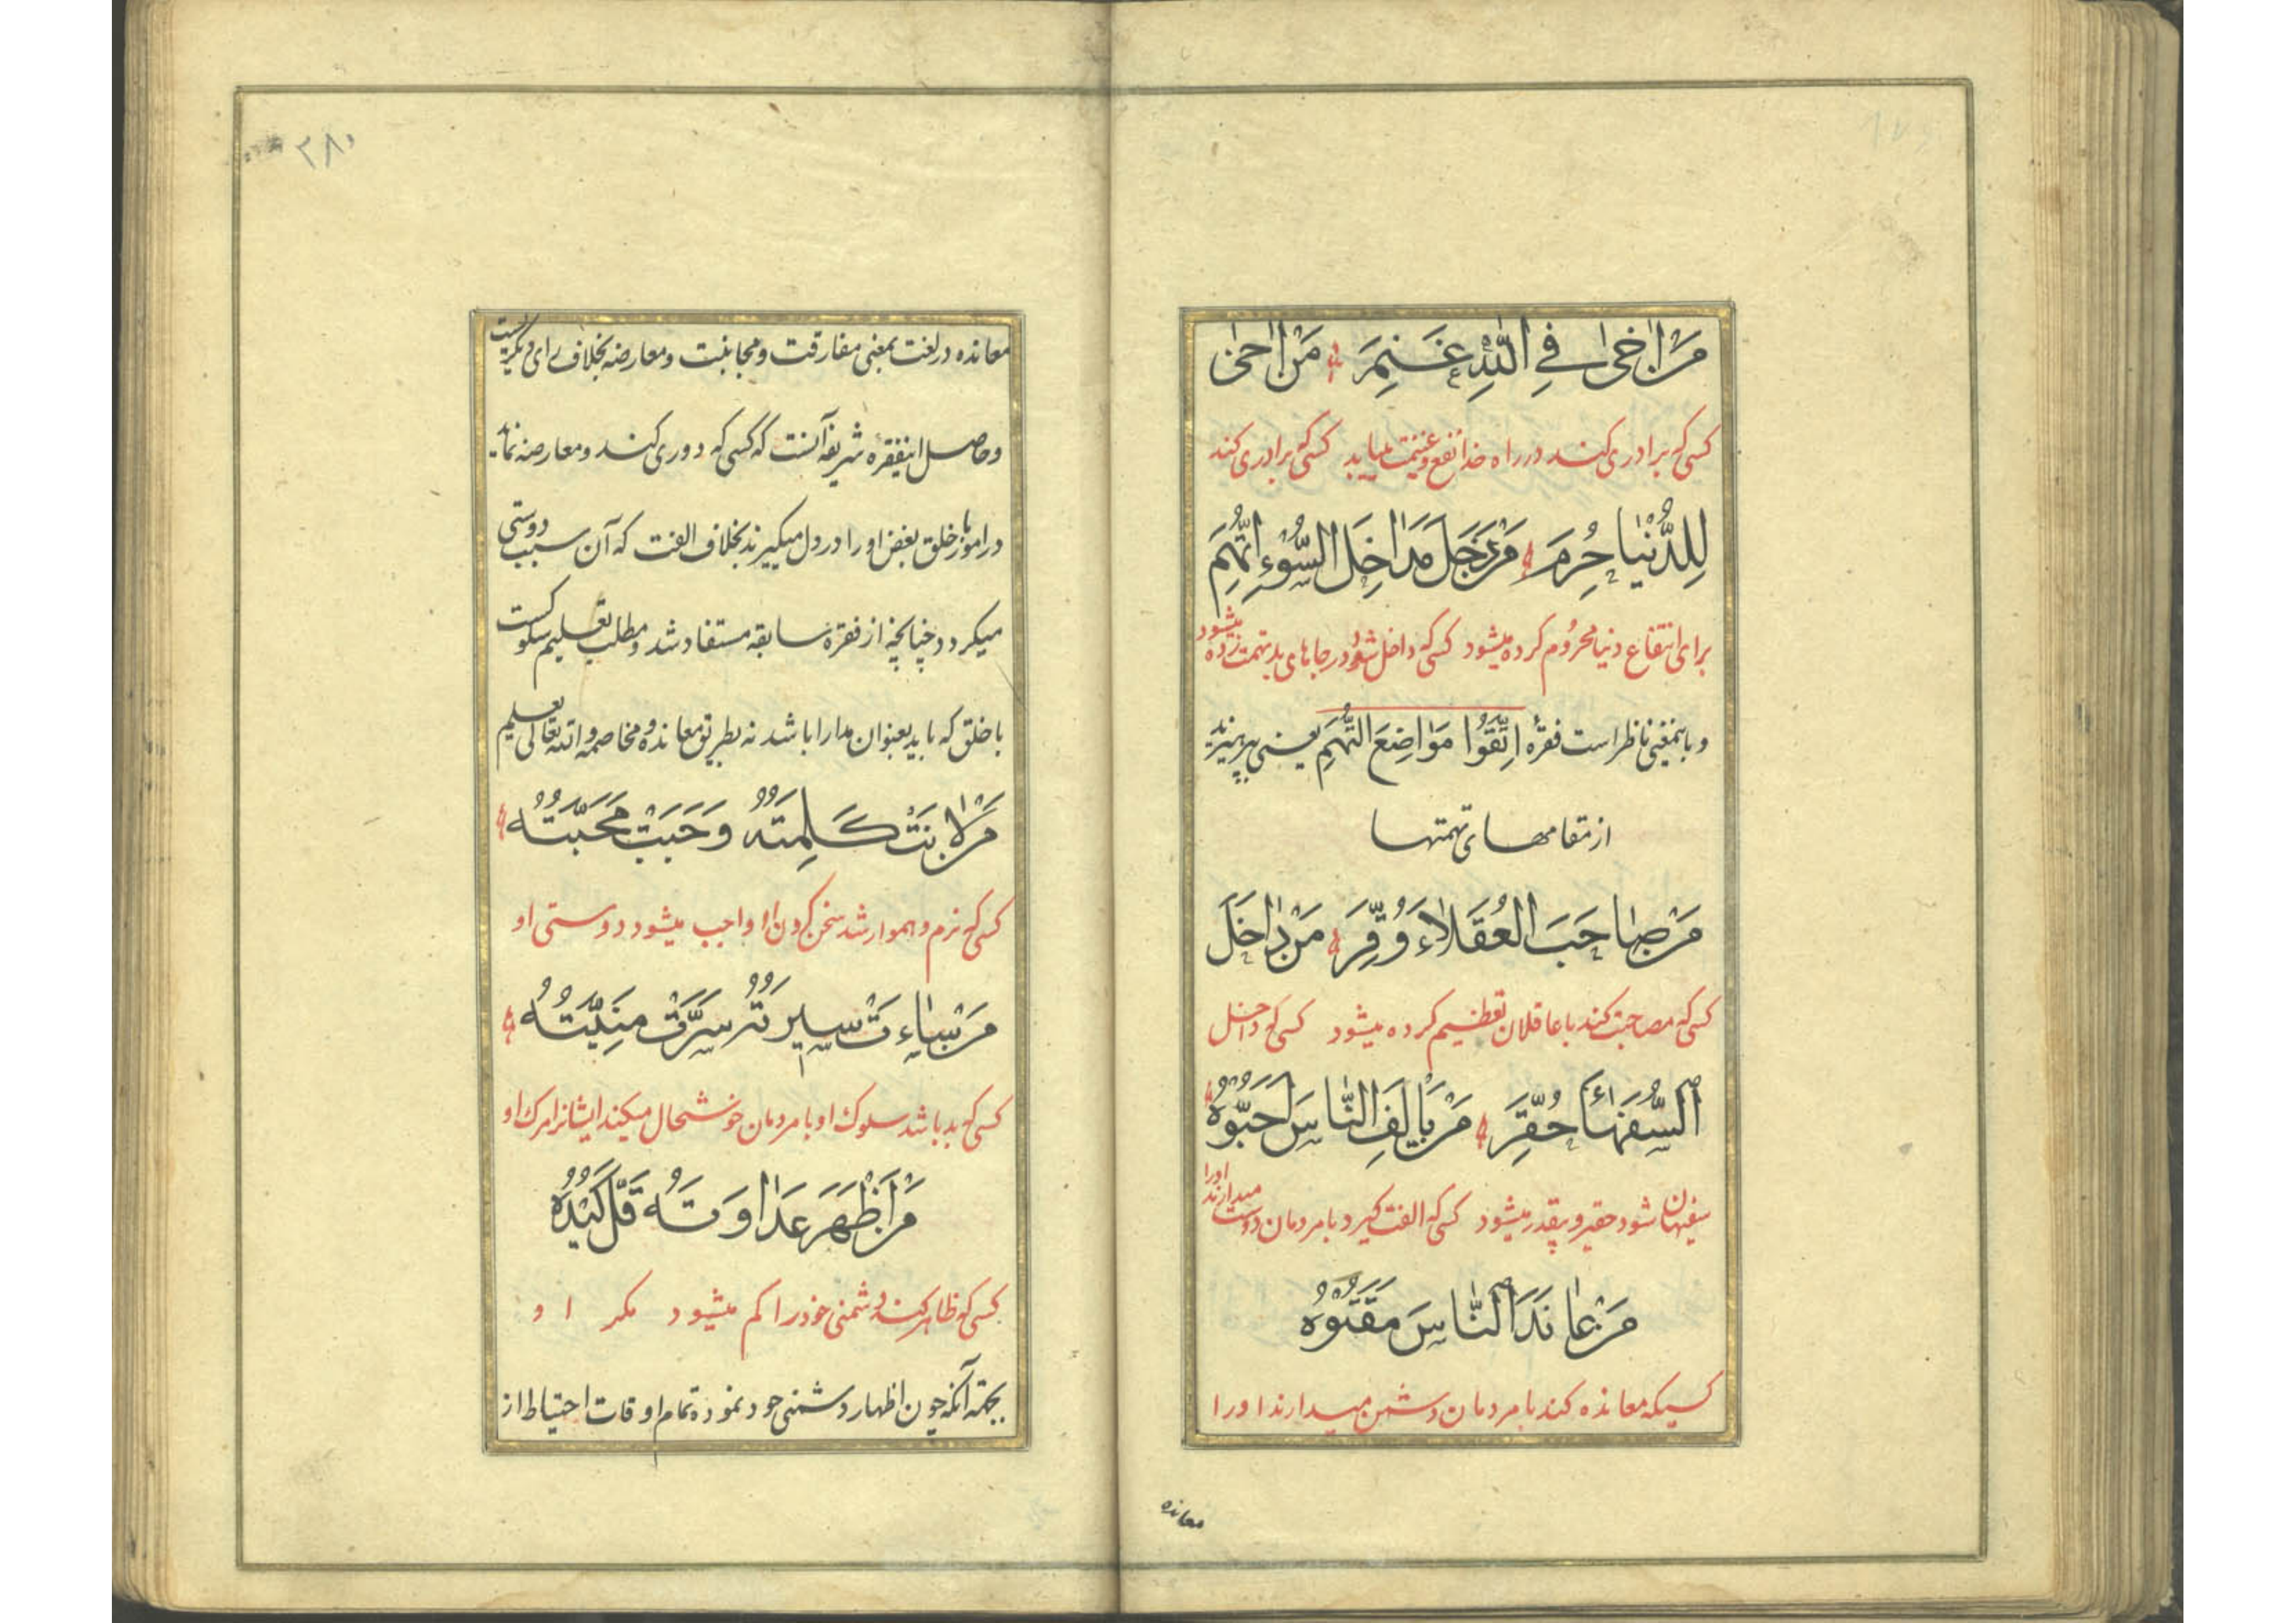 مَنْ اٰخىٰ فِي اللّٰهِ غَنِمَ مَنْ اٰخىٰ
كسی كه برادری كند در راه خدا نفع و غنیمت مییابد كسی كه برادری كند
لِلدُّنْيٰا حُرِمَ مَنْ دَخَلَ مَدٰاخِلَ السُّوْءِ اتُّهِمَ
برای انتفاع دنیا محروم كرده میشود كسی كه داخل شود در جاهای بد تهمت زده میشود
و باینمعنی ناظر است فقرهٔ اِتَّقُوا مَوٰاضِعَ التُّهَمِ یعنی بپرهیزید
از مقامهای تهمتها
مَنْ صٰاحَبَ الْعُقَلٰاءَ وُقِّرَ مَنْ دٰاخَلَ
كسی كه مصاحبت كند با عاقلان تعظیم كرده میشود كسی كه داخل
السُّفَهٰاءَ حُقِّرَ مَنْ يَاْلَفِ النّٰاسَ اَحَبُّوْهُ
سفیهان شود حقیر و بیقدر میشود كسی كه الفت گیرد با مردمان دوست میدارند او را
مَنْ عٰانَدَ النّٰاسَ مَقَتُوْهُ
كسیكه معانده كند با مردمان دشمن میدارند او را
معانده
۲۸۰
معانده در لغت بمعنی مفارقت و مجانبت و معارضه بخلاف رای دیگریست
و حاصل اینفقرهٔ شریفه آنست كه كسی كه دوری كند و معارضه نماید
در امور با خلق بغض او را در دل میگیرند بخلاف الفت كه آن سبب دوستی
میگردد چنانچه از فقرهٔ سابقه مستفاد شد و مطلب تعلیم سلوكست
با خلق كه باید بعنوان مدارا باشد نه بطریق معانده و مخاصمه و اللّه تعالی یعلم
مَنْ لٰانَتْ كَلِمَتُهُ وَجَبَتْ مَحَبَّتُهُ
كسی كه نرم و هموار شد سخن كردن او واجب میشود دوستی او
مَنْ سٰاءَتْ سيرَتُهُ سَرَّتْ مَنِيَّتُهُ
كسی كه بد باشد سلوك او با مردمان خوشحال میكند ایشانرا مرك او
مَنْ اَظْهَرَ عَدٰاوَتَهُ قَلَّ كَيْدُهُ
كسی كه ظاهر كند دشمنی خود را كم میشود مكر او
بجهة آنكه چون اظهار دشمنی خود نموده تمام اوقات احتیاط از